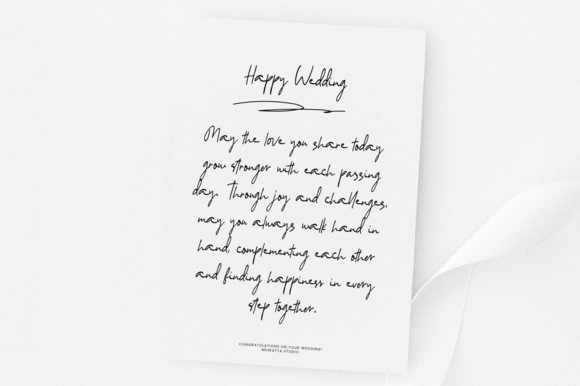 Happy Wedding
May the love you share today
grow stronger with each passing
day. Through joy and challenges,
may you always walk hand in
hand, complementing each other
and finding happiness in every
step together.
CONGRATULATIONS ON YOUR WEDDING!
MUWATTA STUDIO